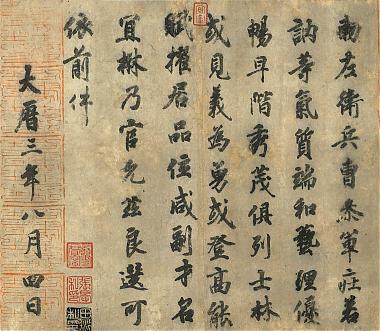 勅左衛兵曹叅軍莊若
訥等氣質端和藝理優
暢早階秀茂俱列士林
或見義為勇或登高能
賦擢居品位咸副才名
宜楙乃官允茲良選可
依前件
大曆三年八月四日